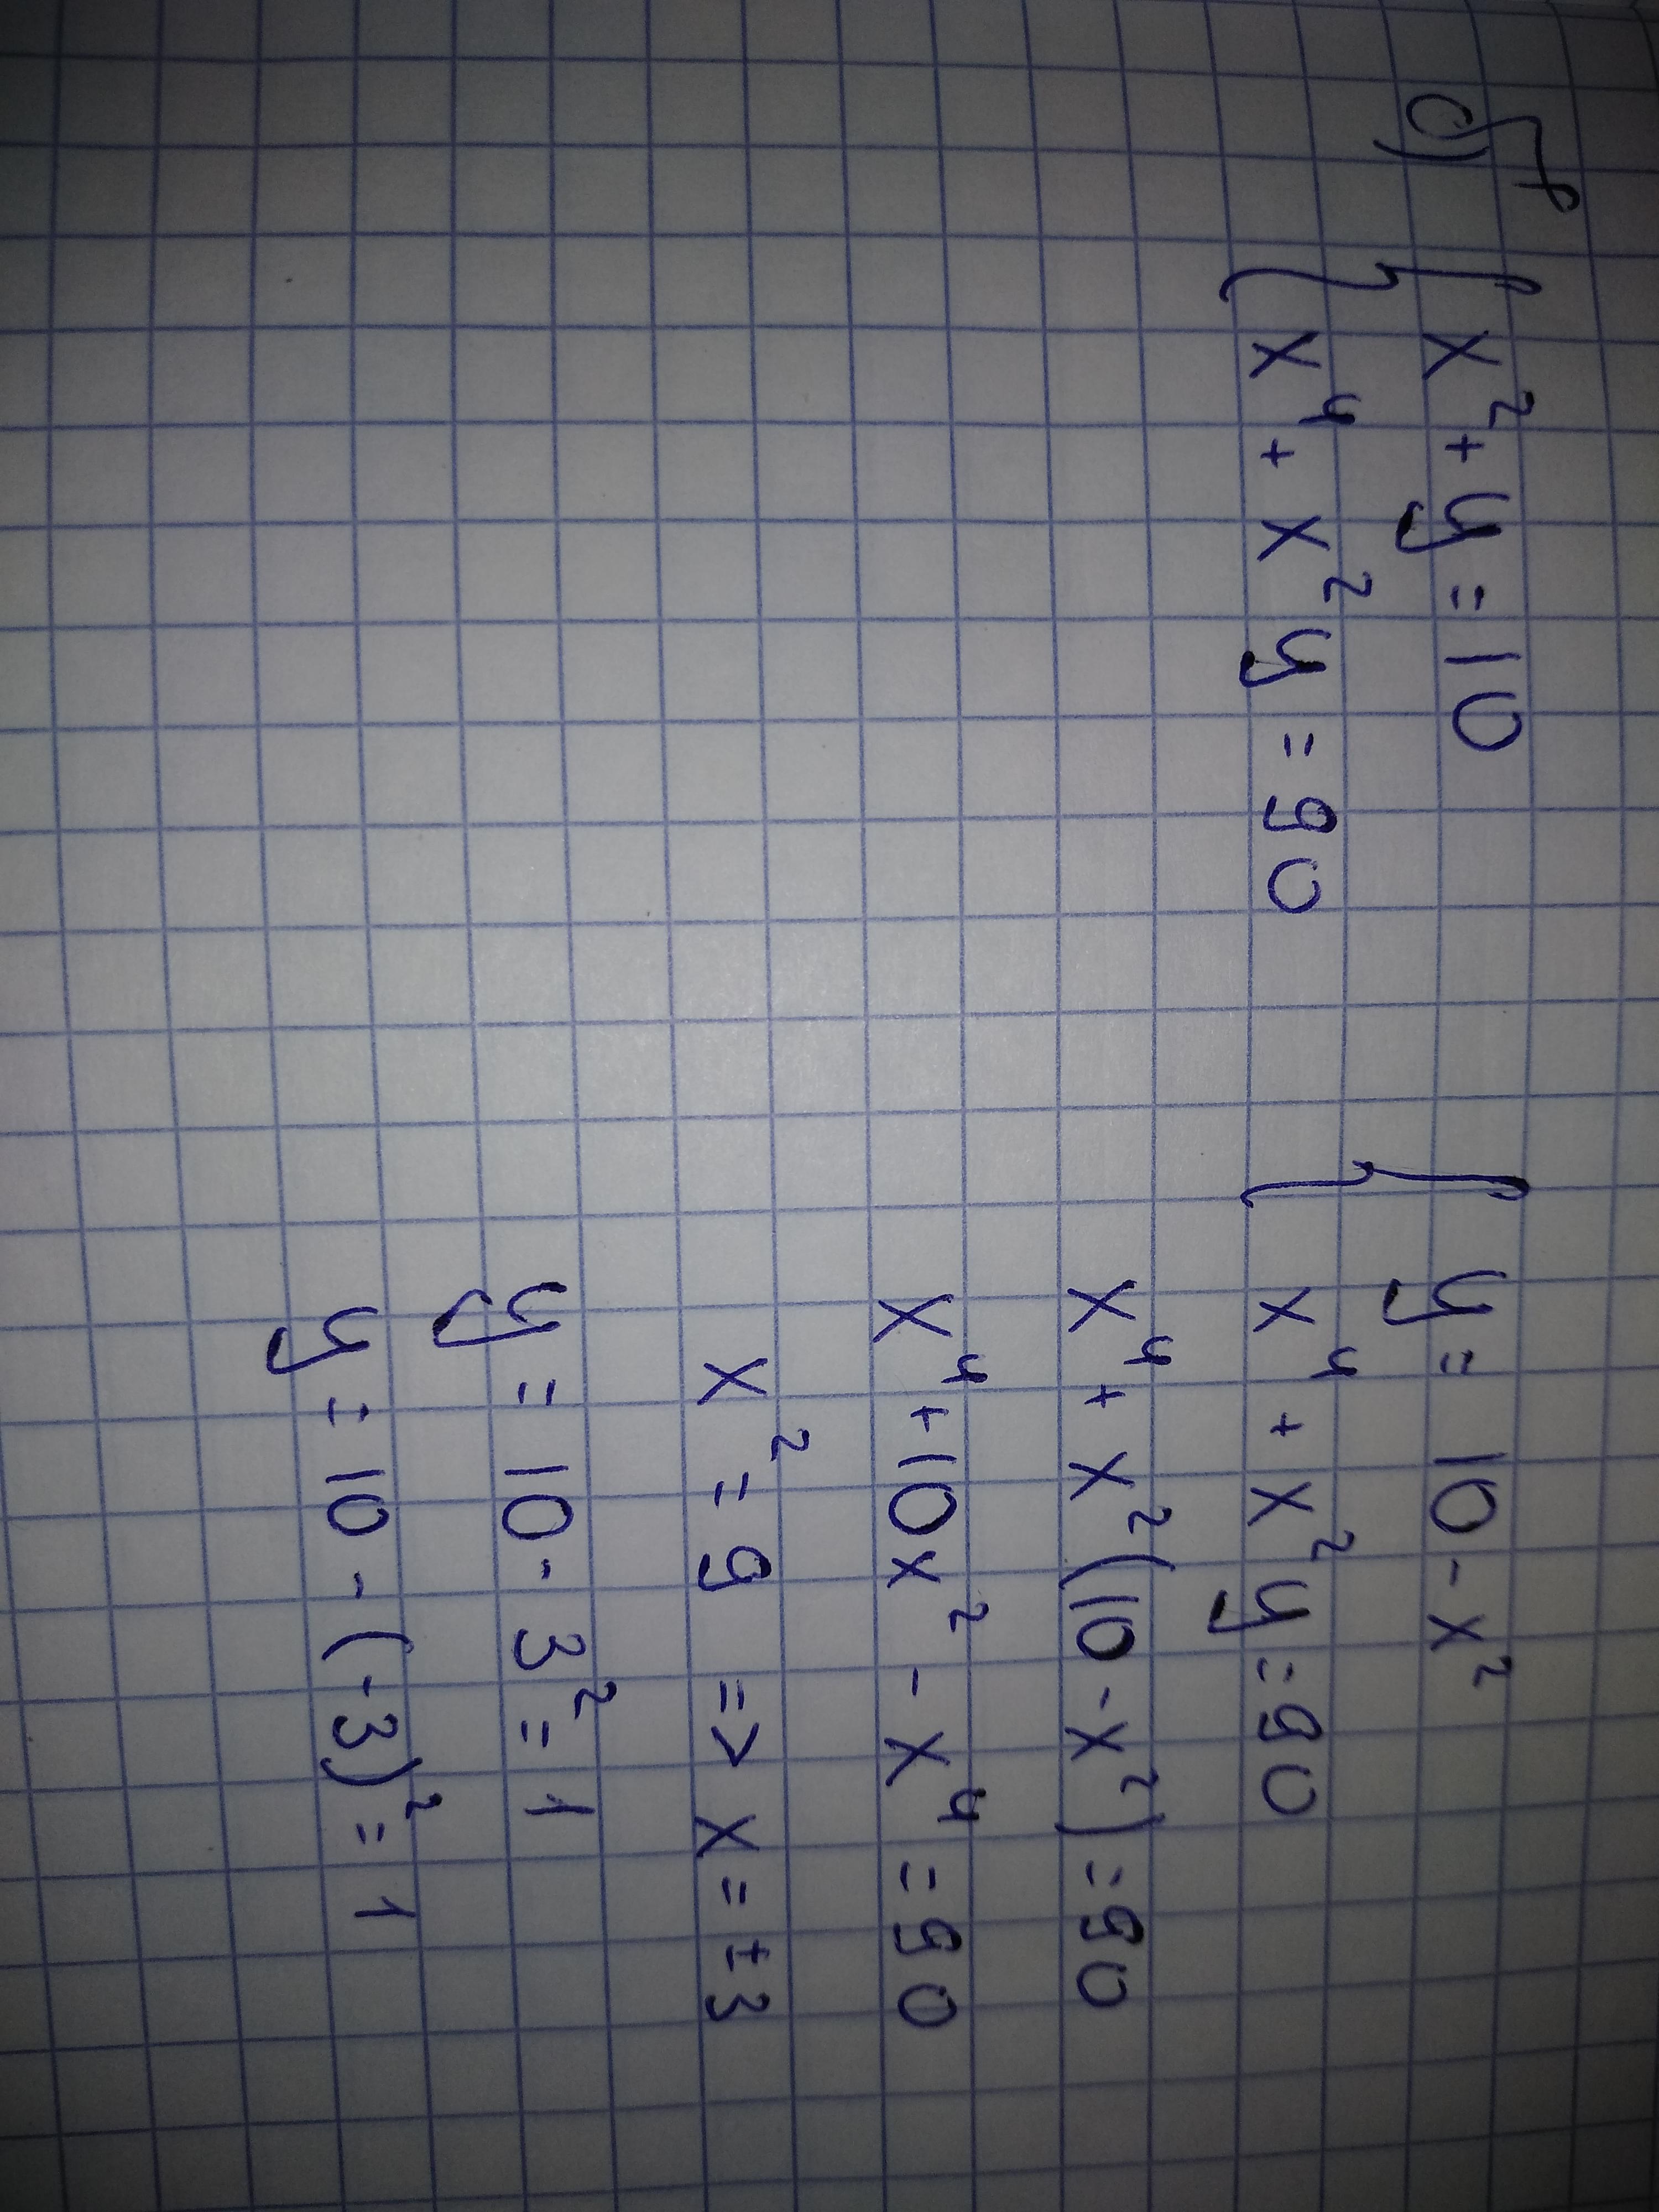 б) { x² + y = 10
x⁴ + x²y = 90
{ y = 10 - x²
x⁴ + x²y = 90
x⁴ + x²(10 - x²) = 90
x⁴ + 10x² - x⁴ = 90
x² = 9 => x = ±3
y = 10 - 3² = 1
y = 10 - (-3)² = 1